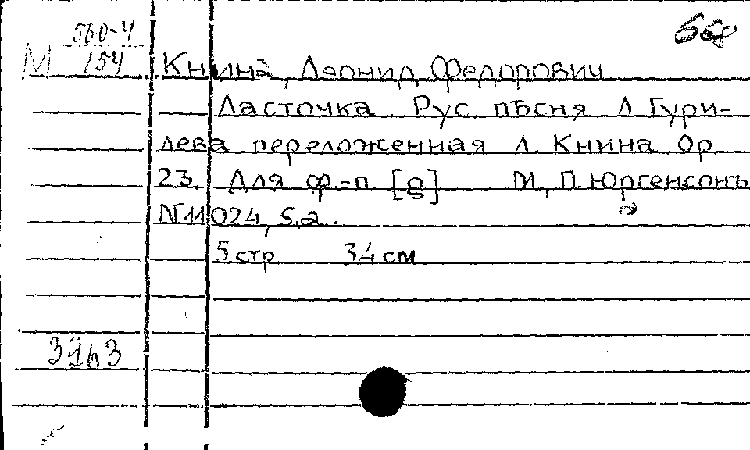 560-4
М 154
Книна, Леонид Федорович
Ласточка Рус. пѣсня Л Гури-
лева переложенная Л. Книна Ор
23. Для ф-п [g] М, П. Юргенсонъ
N 11024, S.a.
5 стр 34 см
3163